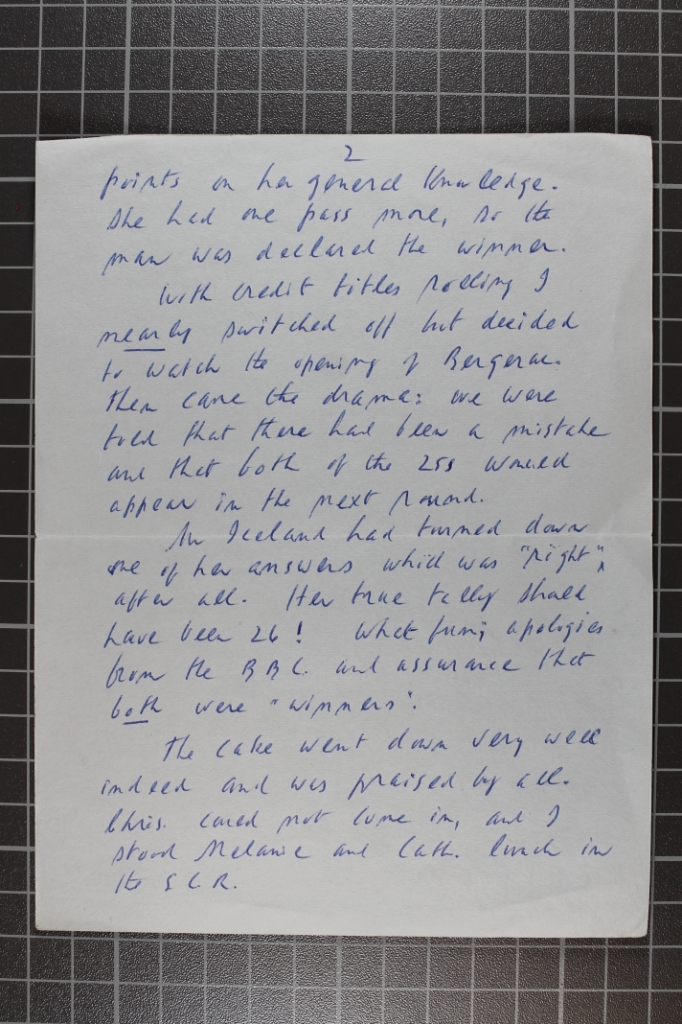 2
points on her general knowledge.
She had one pass more, so the
man was declared the winner.
With credit titles rolling I
nearly switched off but decided
to watch the opening of Bergerac.
Then came the drama: we were
told that there had been a mistake
and that both of the 25s would
appear in the next round.
Mr Iceland had turned down
one of her answers which was "right",
after all. Her true tally should
have been 26! What fun; apologies
from the BBC. and assurance that
both were "winners".
The cake went down very well
indeed and was praised by all.
Chris. could not come in, and I
stood Melanie and Cath. lunch in
the SCR.